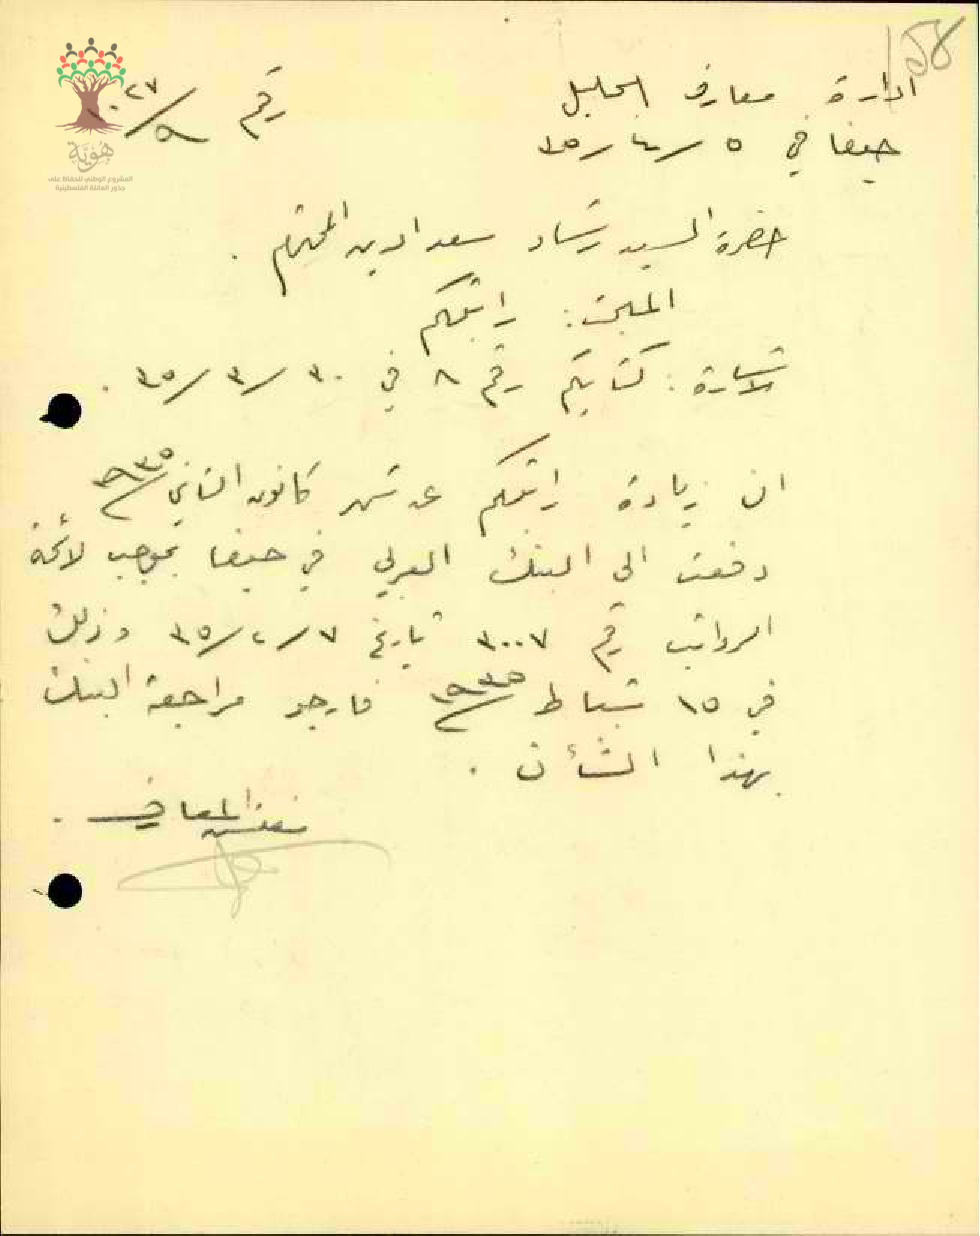 158
ادارة معارف الجليل
رقم ١٠٢٧/٥
حيفا في ٥/٤/٣٥
حضرة السيد رشاد سعد الدين المحترم .
المبحث : راتبكم
الاشارة : كتابكم رقم ٨ في ٣٠/٣/٣٥ .
ان زيادة راتبكم عن شهر كانون الثاني ١٩٣٥
دفعت الى البنك العربي في حيفا بموجب لائحة
الرواتب رقم ٣٠٠٧ تاريخ ٧/٢/٣٥ وذلك
في ١٥ شباط ١٩٣٥ فارجو مراجعة البنك
بهذا الشأن .
مفتش المعارف .
هُوِيَّة
المشروع الوطني للحفاظ على
جذور العائلة الفلسطينية